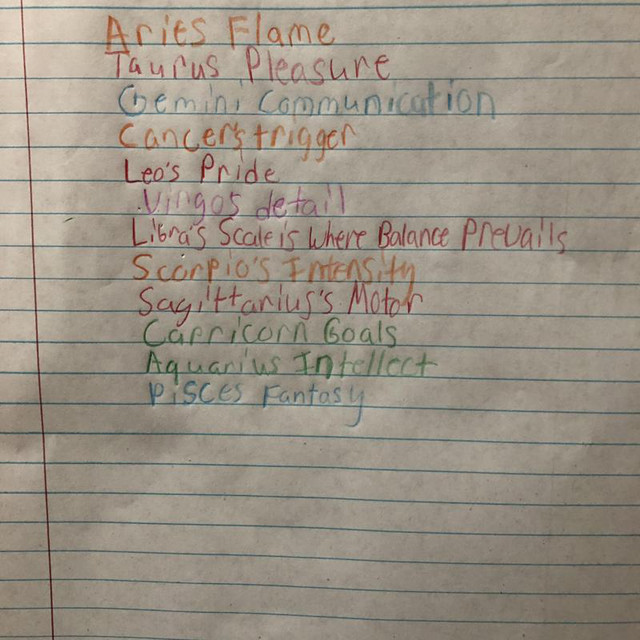 Aries Flame
Taurus Pleasure
Gemini Communication
Cancer's trigger
Leo's Pride
Virgo's detail
Libra's Scale is Where Balance Prevails
Scorpio's Intensity
Sagittarius's Motor
Capricorn Goals
Aquarius Intellect
Pisces Fantasy